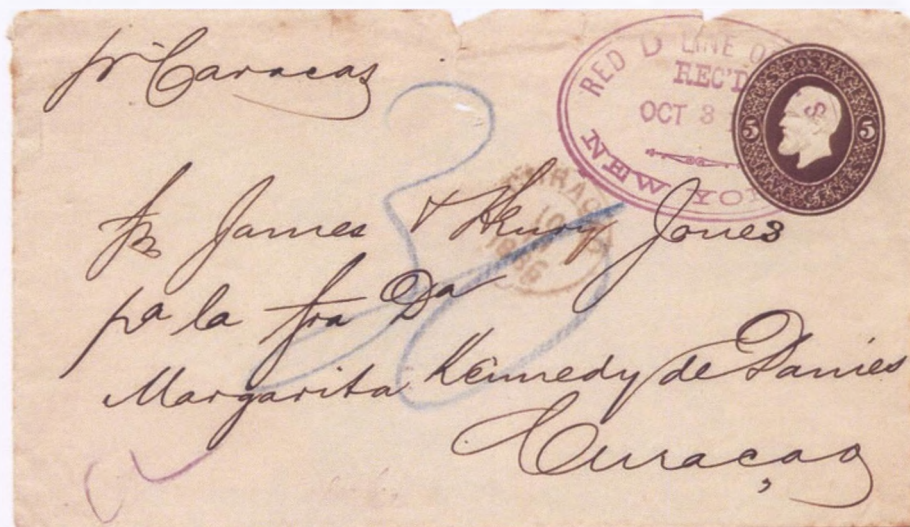 pr Caracas
RED D LINE
REC'D
OCT 3
NEW YO
5 5
CURAÇAO
10
1886
30
Sr James & Henry Jones
pa la Sra Da
Margarita Kennedy de Daniës
Curaçao